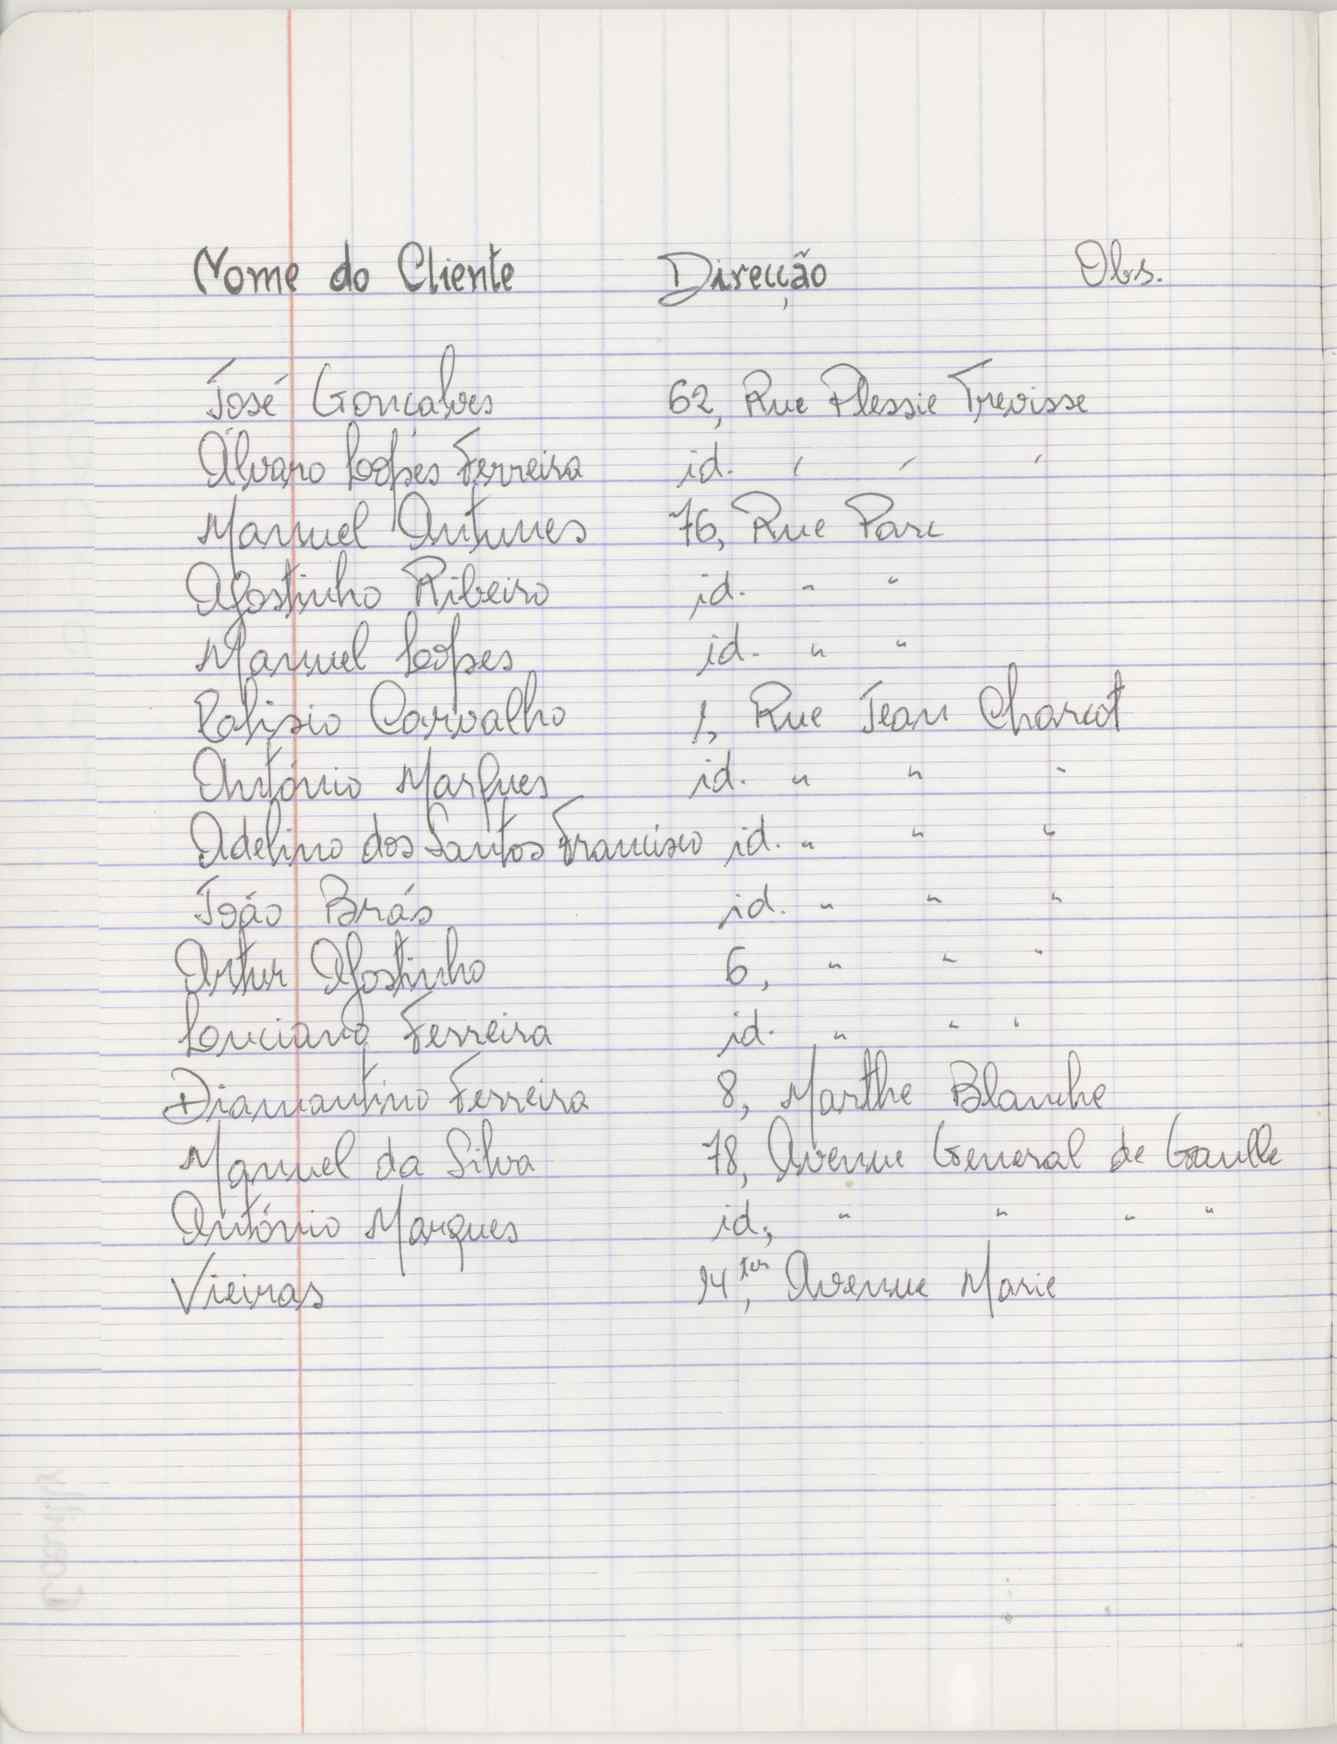 Nome do Cliente Direcção Obs.
José Gonçalves 62, Rue Plessie Trevisse
Álvaro Lopes Ferreira id. " " "
Manuel Antunes 76, Rue Parc
Agostinho Ribeiro id. " "
Manuel Lopes id. " "
Carvalho 1, Rue Jean Charcot
António Marques id. " " "
Adelino dos Santos Francisco id. " " "
João Brás id. " " "
Artur Agostinho 6, " " "
Luciano Ferreira id. " " "
Diamantino Ferreira 8, Marthe Blanche
Manuel da Silva 78, Avenue General de Gaulle
António Marques id, " " " "
Vieiras 94 ter, Avenue Marie